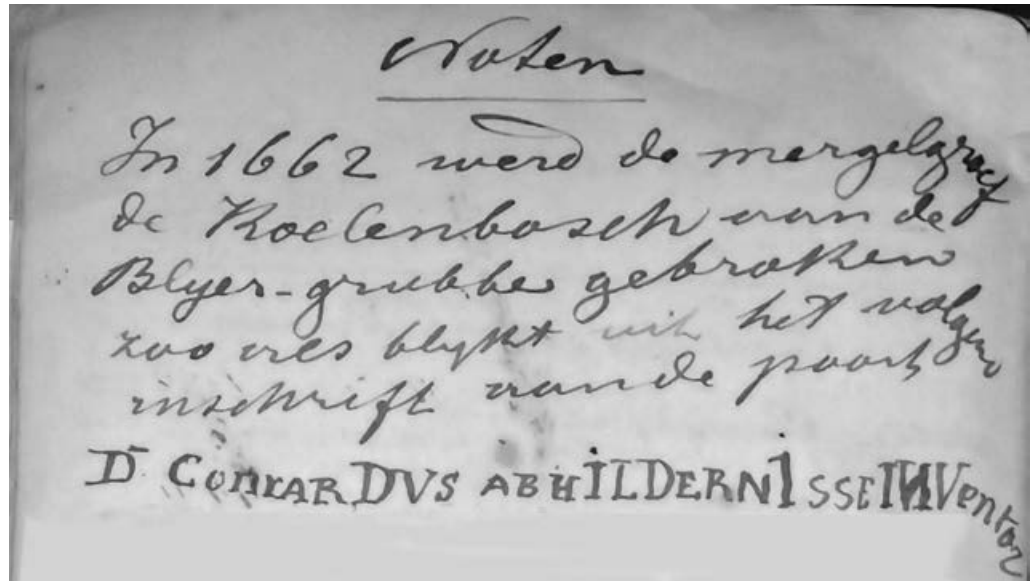 Noten
In 1662 werd de mergelgroef
de Koelenbosch aan de
Blyer-grubbe gebroken
zoo als blykt uit het volgen
inschrift aan de poort
D̄ ConrarDVS AB HILDERNISSE INVentor